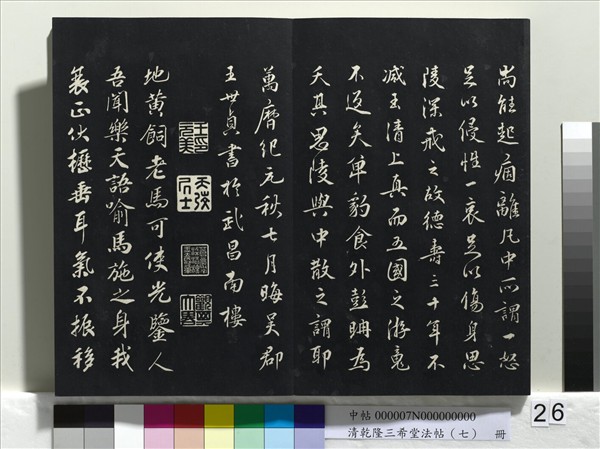 尚能起痼離凡中所謂一怒
足以侵性一哀足以傷身思
陵深戒之故德壽三十年不
減玉清上真而五國之游竟
不返矣單豹食外彭聃為
夭其思陵與中散之謂耶
萬曆紀元秋七月晦吳郡
王世貞書於武昌南樓
地黃飼老馬可使光鑒人
吾聞樂天語喻馬施之身我
衰正伏櫪垂耳氣不振移
中帖 000007N000000000
清乾隆三希堂法帖（七） 冊
26